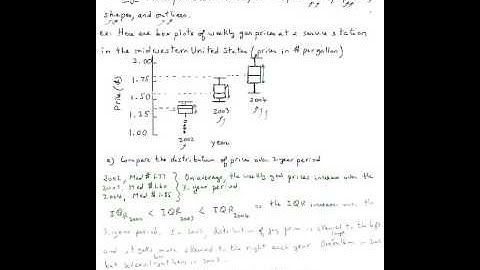 shapes, and outliers.
ex: Here are box plots of weekly gas prices at a service station
in the midwestern United States (prices in $ per gallon)
2.00
1.75
1.50
1.25
1.00
Price ($)
2002
2003
2004
year
a) Compare the distribution of prices over 3-year period
2002, Med $
On average, the weekly gas prices increase over the
2003, Med $
3-year period
2004, Med $
IQR 2002 < IQR 2003 < IQR 2004 so the IQR increase over the
3-year period. In 2002, distribution of gas price is skewed to the left
and it gets more skewed to the right each year. Outliers in 2002
but